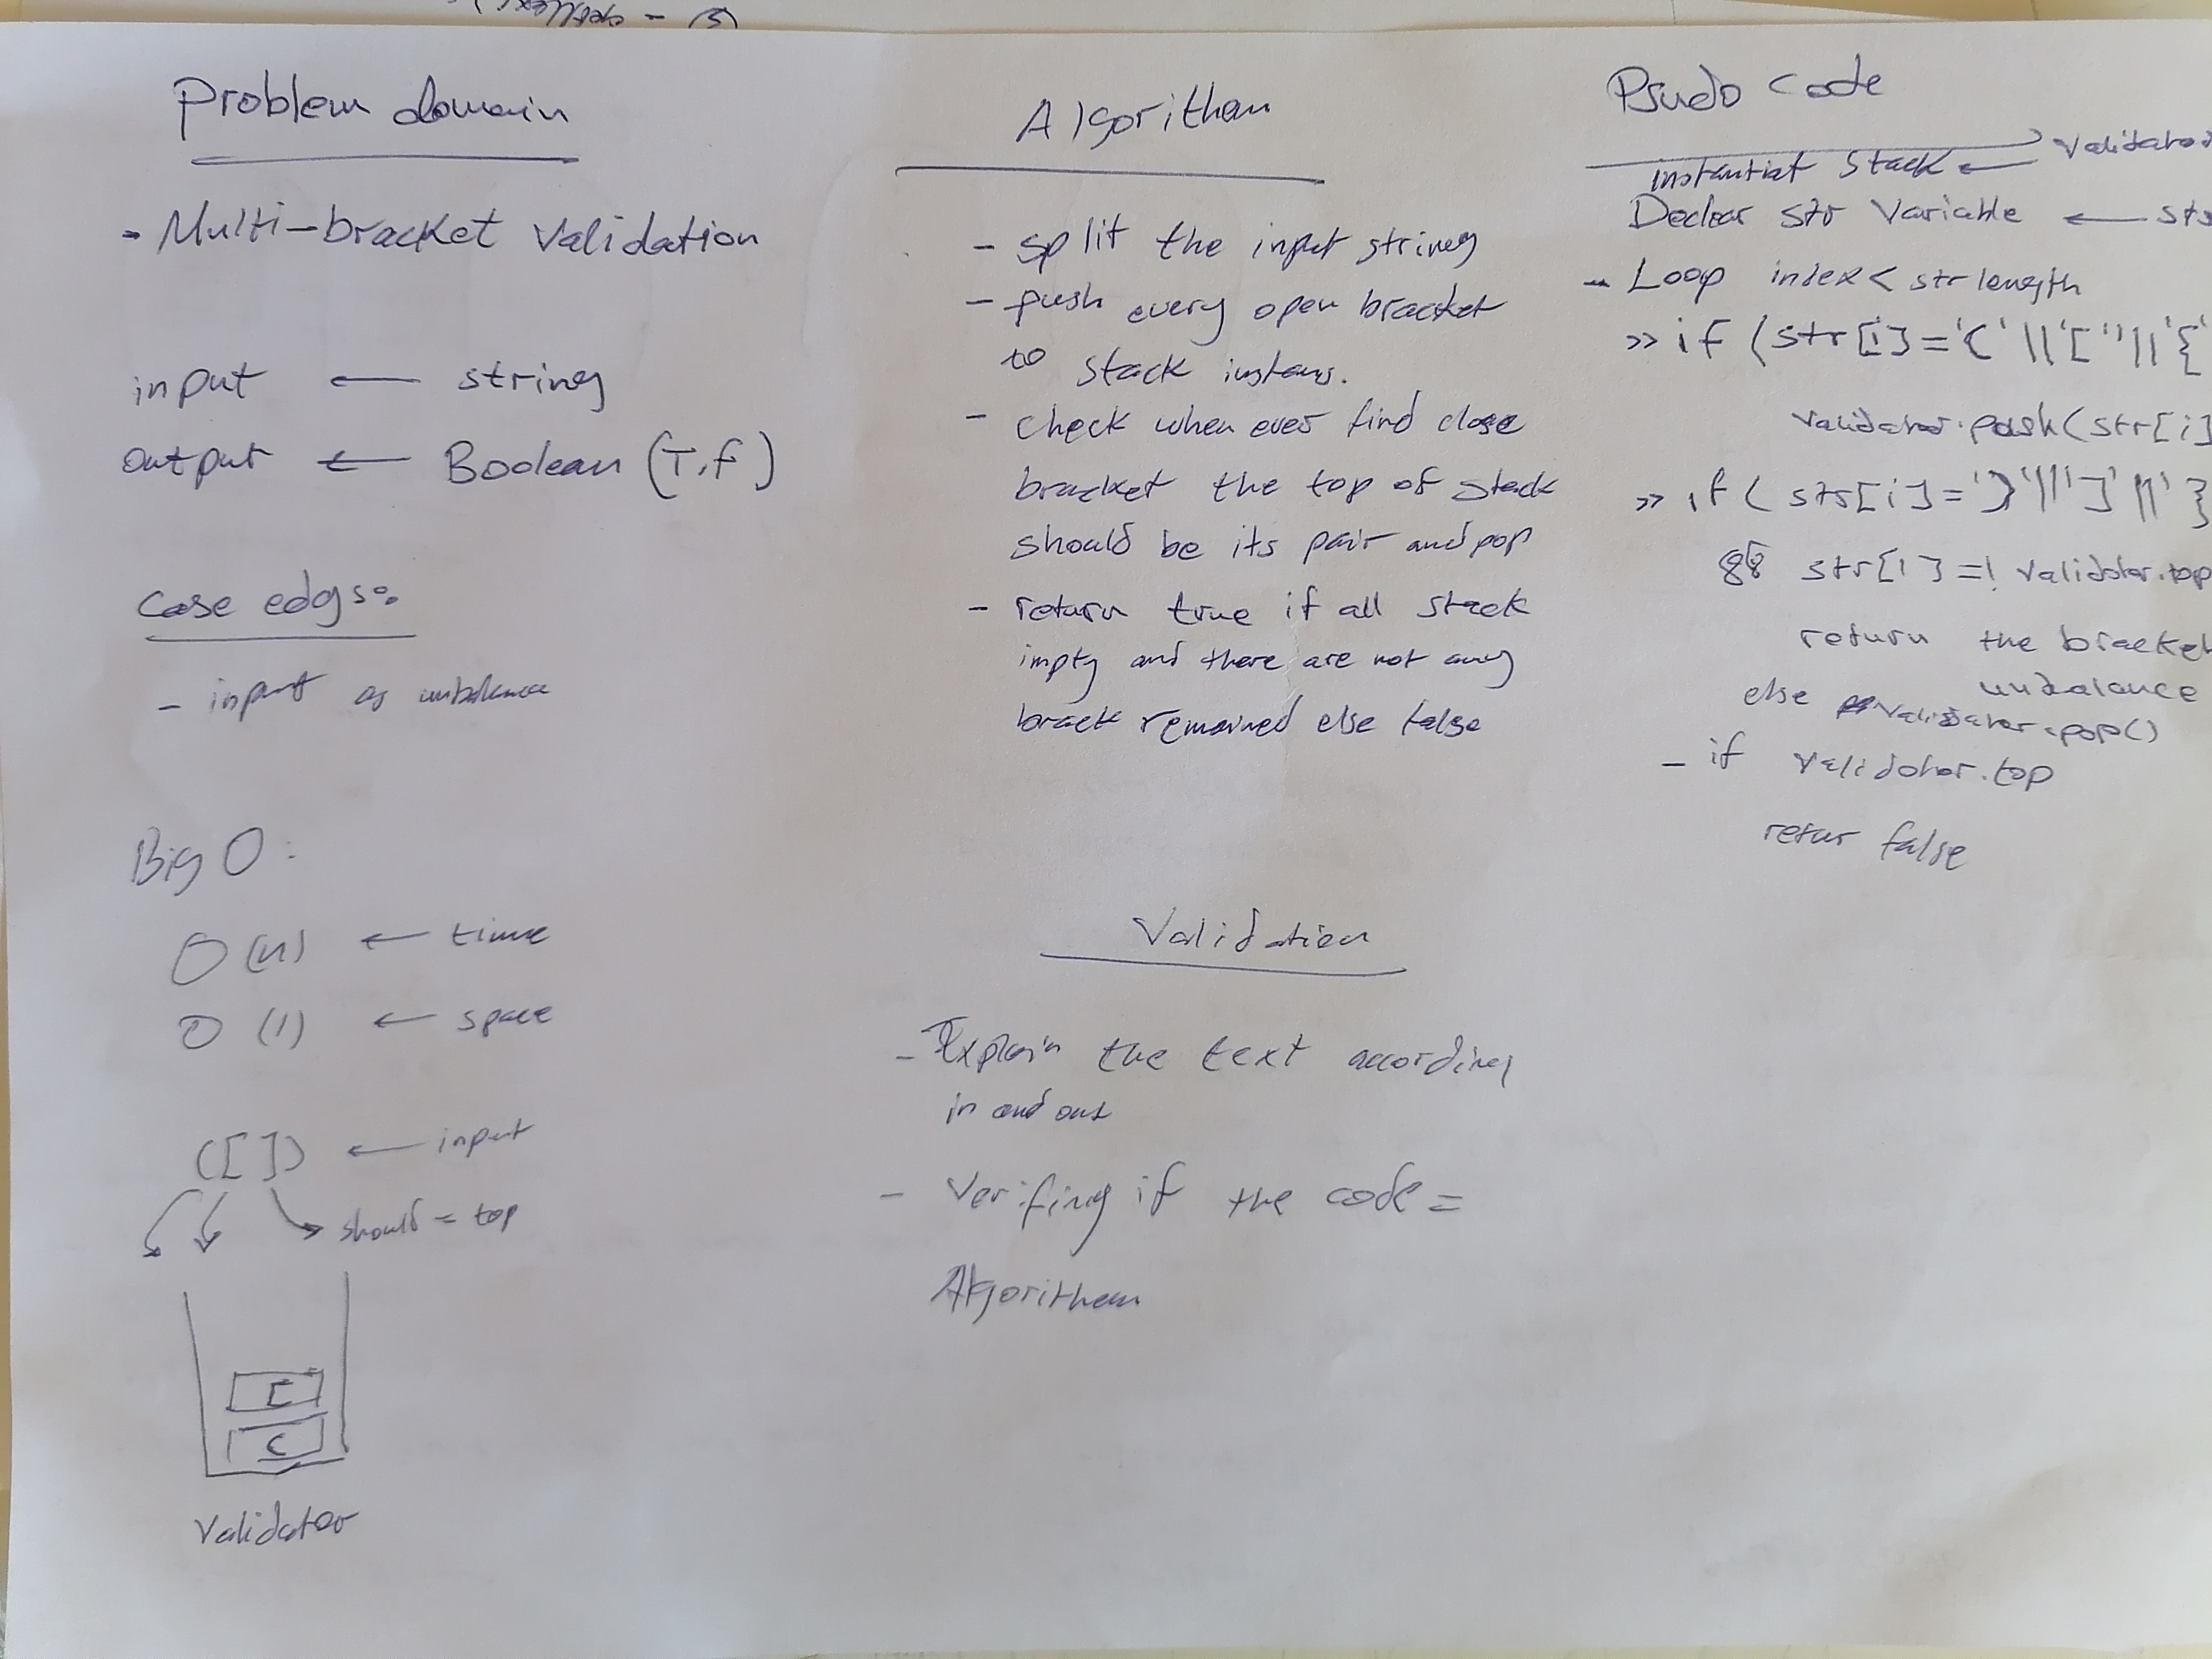 Problem domain
- Multi-bracket Validation
input ← string
output ← Boolean (T,f)
Case edgs:
- input as unbalance
Big O:
O(n) ← time
O(1) ← space
([]) ← input
should = top
[
(
Validator
Algorithem
- split the input string
- push every open bracket
to stack instans.
- check when ever find close
bracket the top of stack
should be its pair and pop
- return true if all stack
impty and there are not any
brack remained else false
Validation
- Explain the text according
in and out
- Verifing if the code =
Algorithem
Psudo code
instantiat Stack ← Validator
Declear str Variable ← str
- Loop index < str length
>> if (str[i]='(' || '[' || '{'
validator.push(str[i]
>> if ( str[i]=')' || ']' || '}
&& str[i] =! validator.top
return the bracket
unbalance
else validator.pop()
- if validator.top
retur false